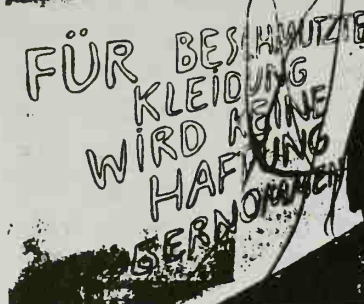 FÜR BESCHMUTZTE
KLEIDUNG
WIRD KEINE
HAFTUNG
ÜBERNOMMEN